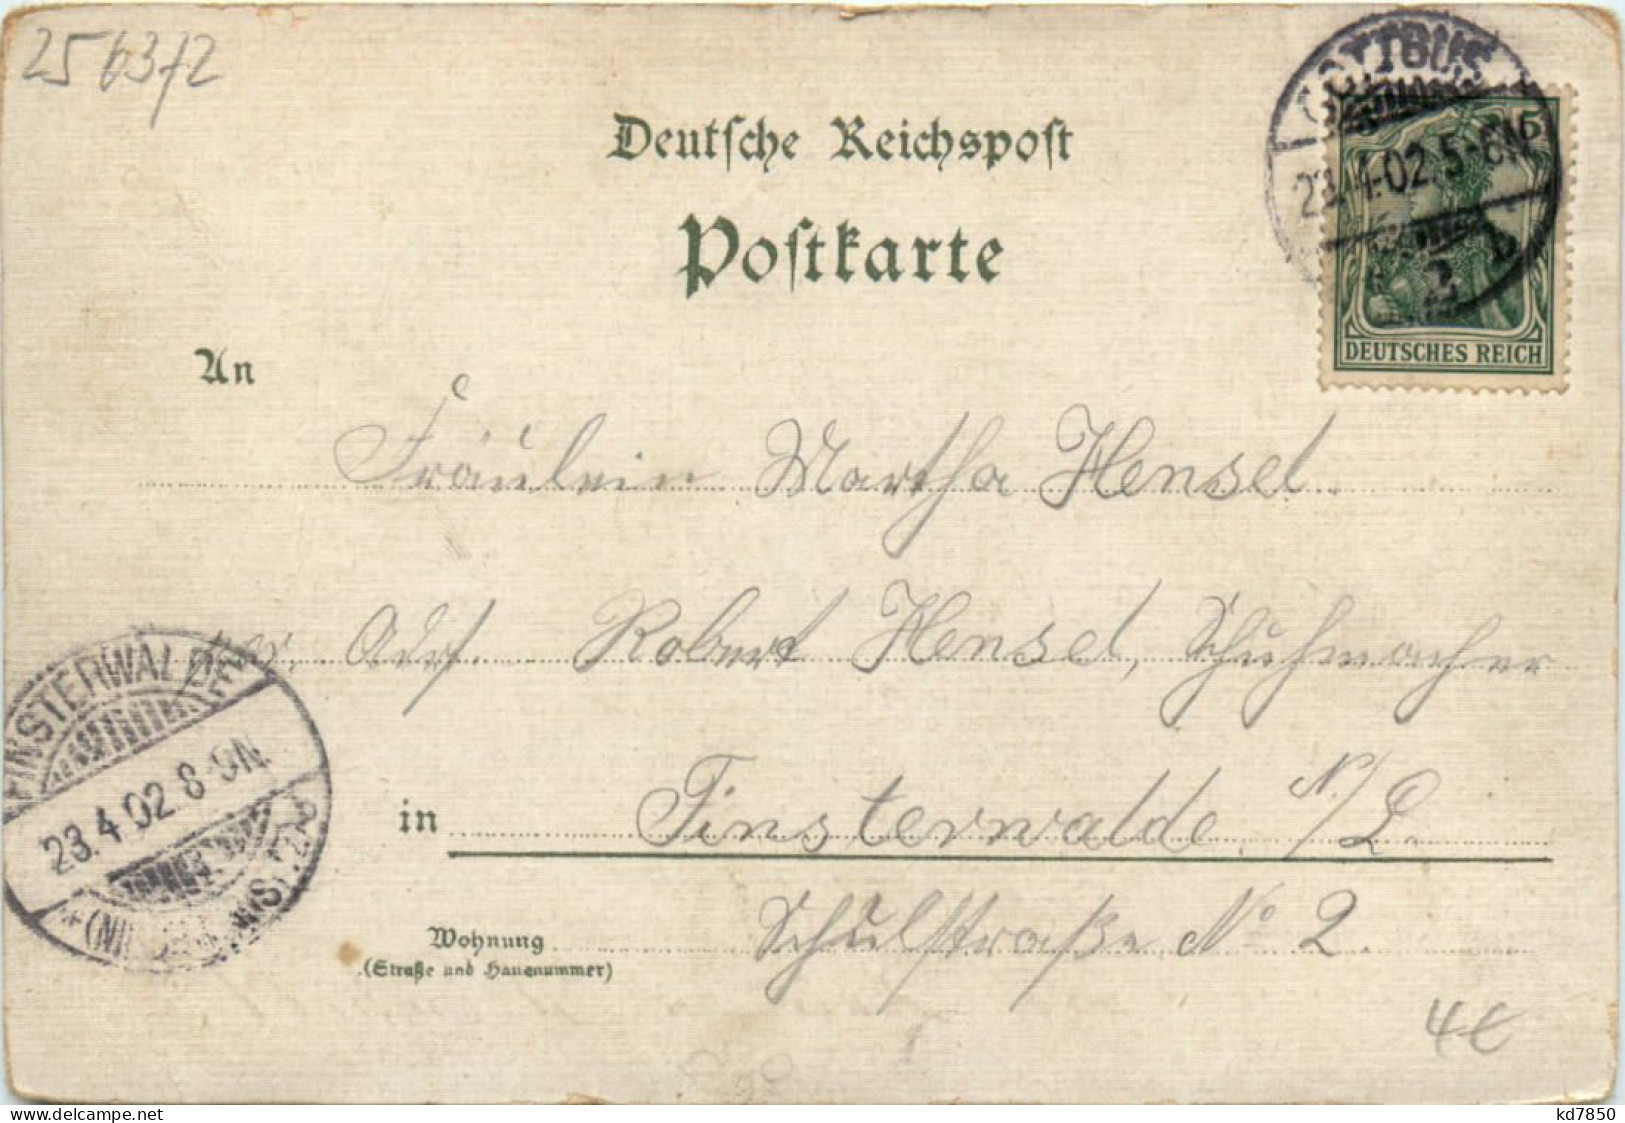 25 63/2
Deutsche Reichspost
Postkarte
COTTBUS
23.4.02.5-6N
2 b
5
DEUTSCHES REICH
An
Fräulein Martha Hensel.
Adr. Robert Hensel, Schuhmacher
in Finsterwalde N./L.
Wohnung Schulstraße No 2.
(Straße und Hausnummer)
FINSTERWALDE
23.4.02 8-9N
4€
www.delcampe.net
kd7850